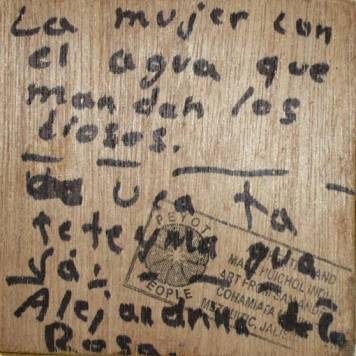 La mujer con
el agua que
mandan los
diosos.
uca ta
teteyma gua
vá.
Alejandrina de la
Rosa.
PEYOTE
PEOPLE
HUICHOL AND
ART FROM SAN ANDRES
COHAMIATA
MEZQUITIC, JAL.